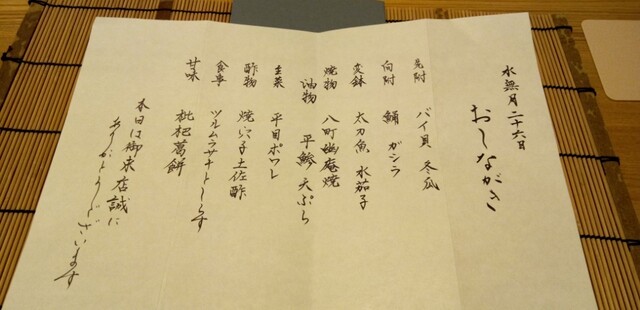 水無月二十六日
おしながき
先附 バイ貝 冬瓜
向附 鯒 ガシラ
変鉢 太刀魚 水茄子
焼物 八町幽庵焼
油物 平鯵 天ぷら
主菜 平目ポワレ
酢物 焼穴子土佐酢
食事 ツルムラサキとしらす
甘味 枇杷葛餅
本日は御来店誠に
ありがとうございます